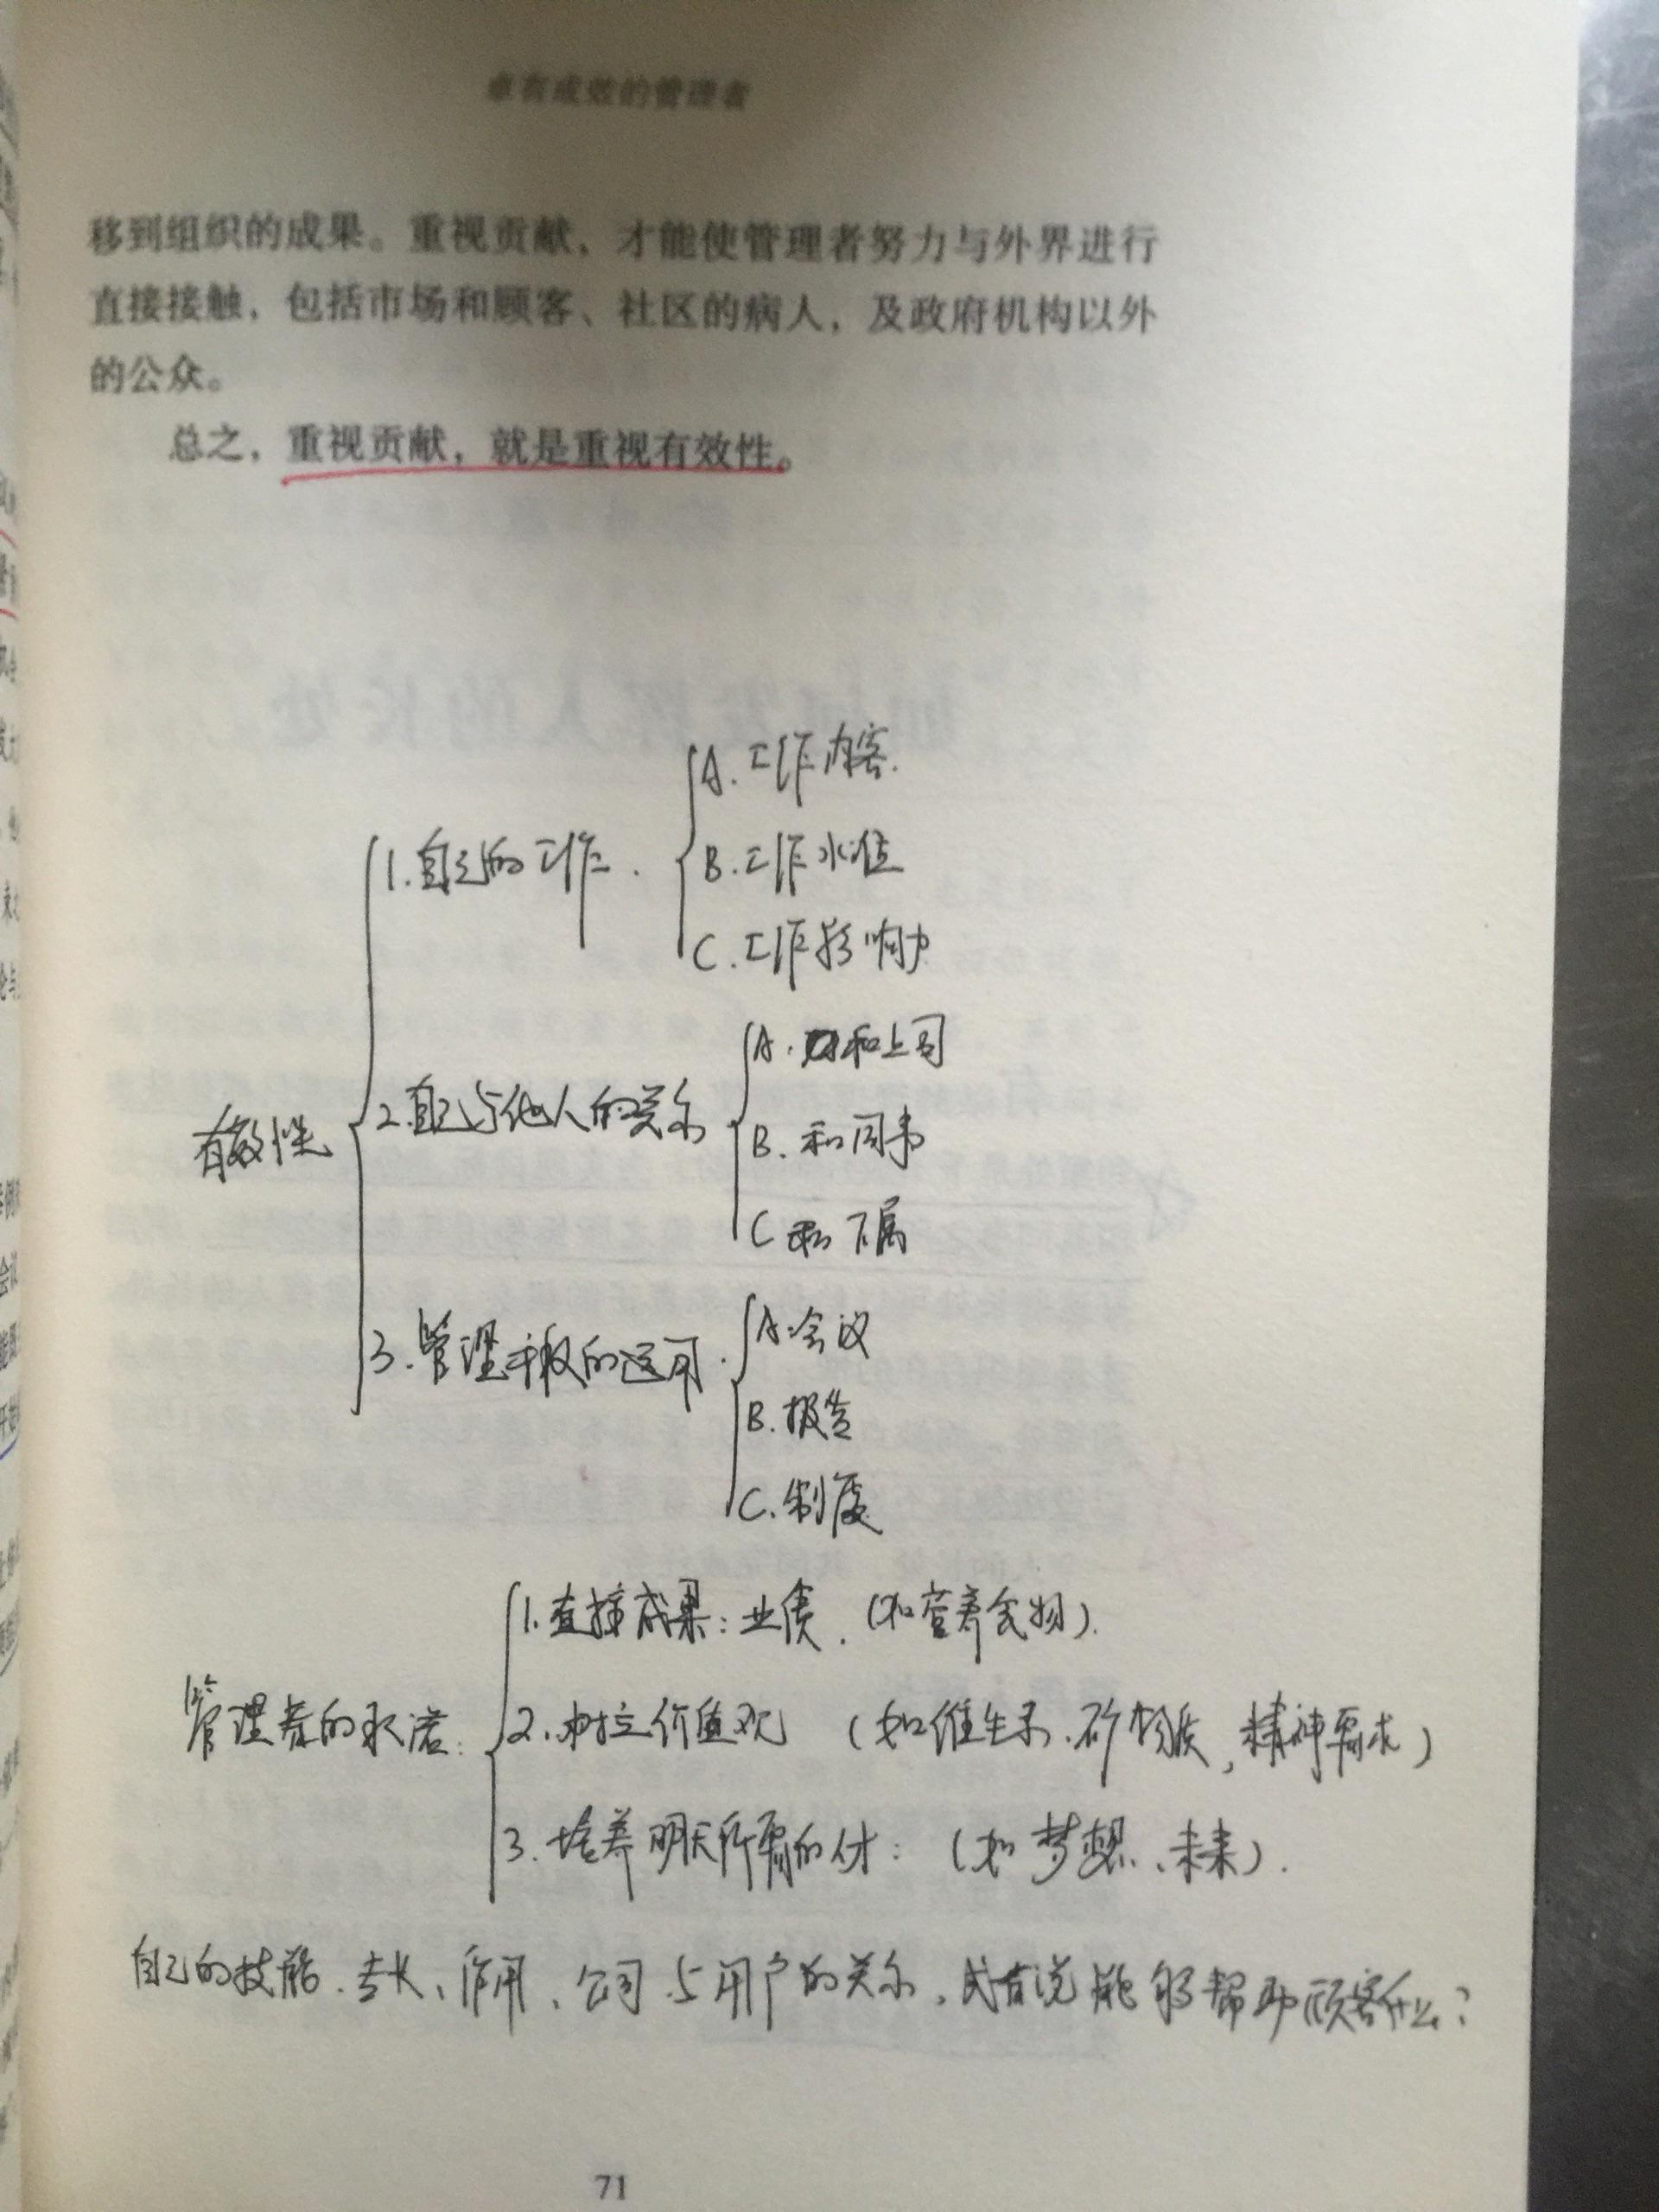 卓有成效的管理者
移到组织的成果。重视贡献，才能使管理者努力与外界进行
直接接触，包括市场和顾客、社区的病人，及政府机构以外
的公众。
总之，重视贡献，就是重视有效性。
A.工作内容.
1.自己的工作.
B.工作水准
C.工作影响力
A.和上司
有效性
2.自己与他人的关系
B.和同事
C.和下属
3.管理手段的运用.
A.会议
B.报告
C.制度
1.直接成果：业绩.（如营养食物）.
管理者的承诺：
2.树立价值观 （如维生素、矿物质，精神需求）
3.培养明天所需的人才：（如梦想、未来）.
自己的技能、专长、作用、公司与用户的关系，或者说能够帮助顾客什么？
71